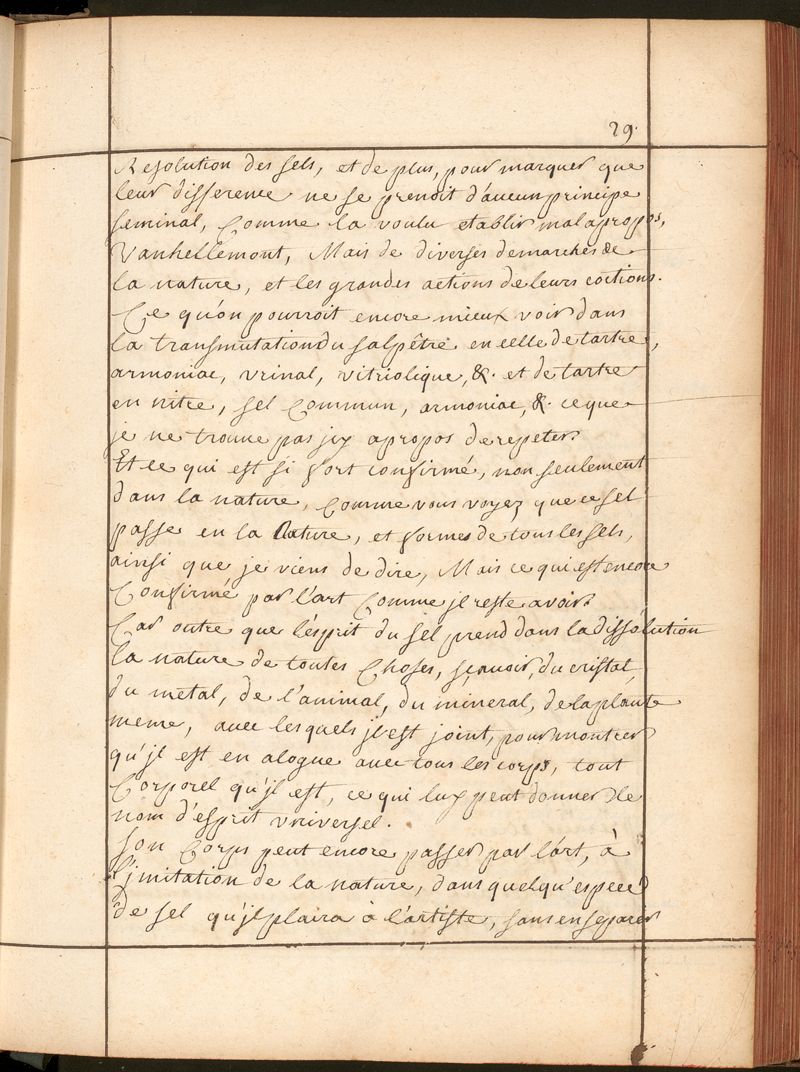 29.
Resolution des sels, et de plus, pour marquer que
leur difference ne se prenoit d'aucun principe
seminal, Comme la voulu etablir mal apropos,
Vanhellemont, Mais de diverses demarches de
la nature, et les grandes actions de leurs coctions.
Ce qu'on pourroit encore mieux voir dans
la transmutation du salpêtre en celle de tartre,
armoniac, vrinal, vitriolique, &. et de tartre
en nitre, sel Commun, armoniac, &. ce que
je ne trouve pas jcy apropos de repeter.
Et ce qui est si fort confirmé, non seulement
dans la nature, Comme vous voyez que ce sel
passe en la Nature, et formes de tous les sels,
ainsi que je viens de dire, Mais ce qui est encore
Confirmé par l'art Comme jl reste avoir.
Car outre que l'esprit du sel prend dans la dissolution
la nature de toutes Choses, sçauoir, du cristal,
du metal, de l'animal, du mineral, de la plante
meme, auec lesquels jl est joint, pour montrer
qu'jl est en alogue auec tous les corps, tout
Corporel qu'jl est, ce qui luy peut donner le
nom d'esprit vniversel.
Son Corps peut encore passer par l'art, à
l'jmitation de la nature, dans quelqu'espece
de sel qu'jl plaira à l'artiste, sans en separer